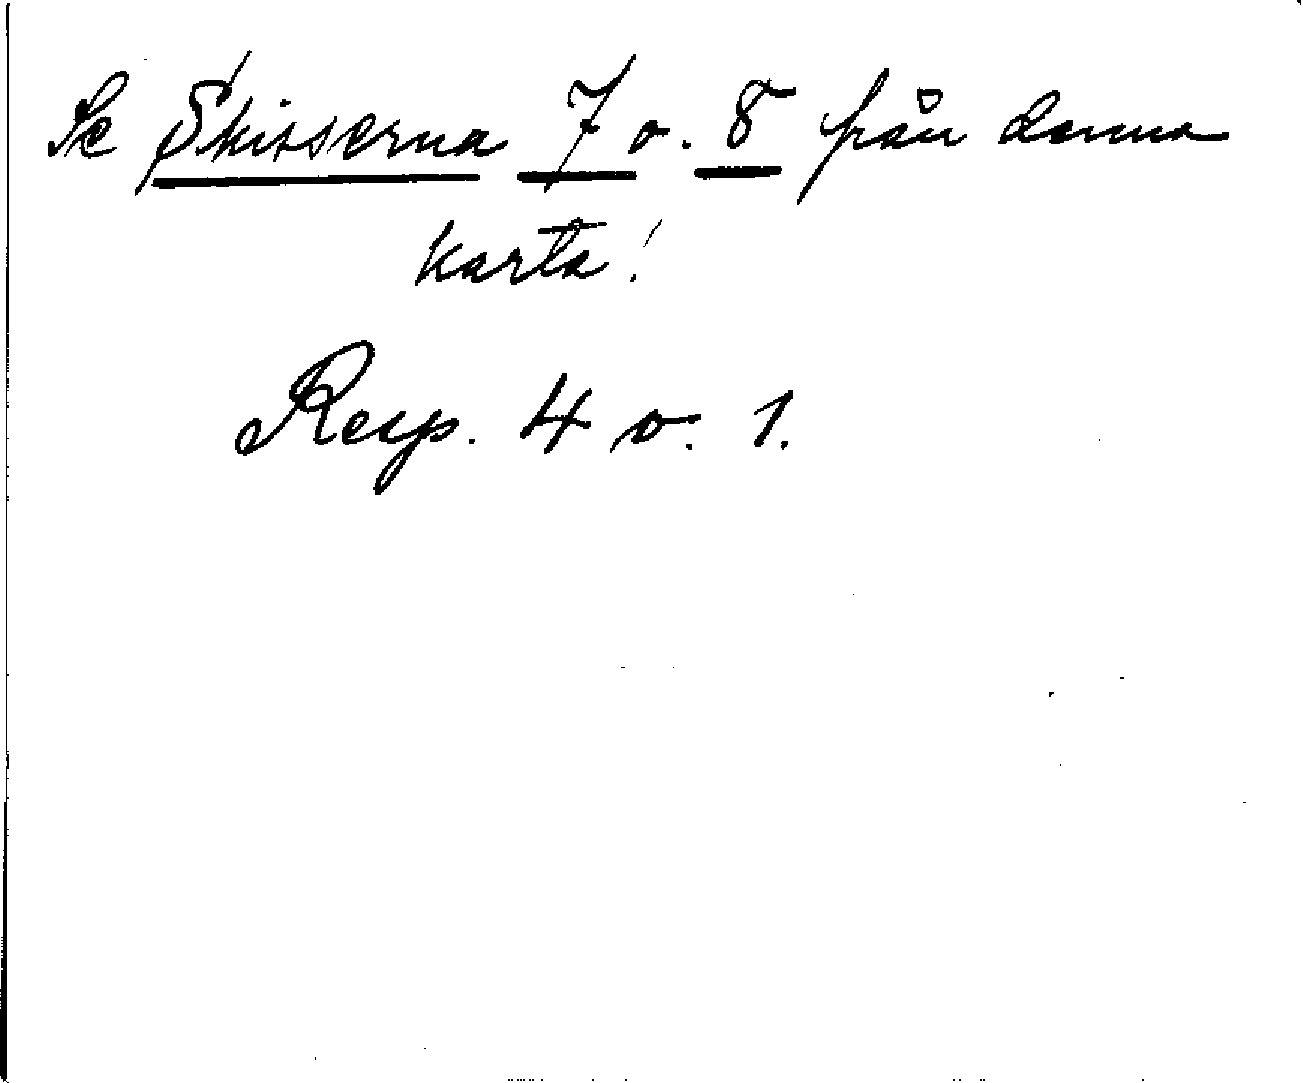 Se Skisserna 7 o. 8 från denna
karta!
Resp. 4 o. 1.